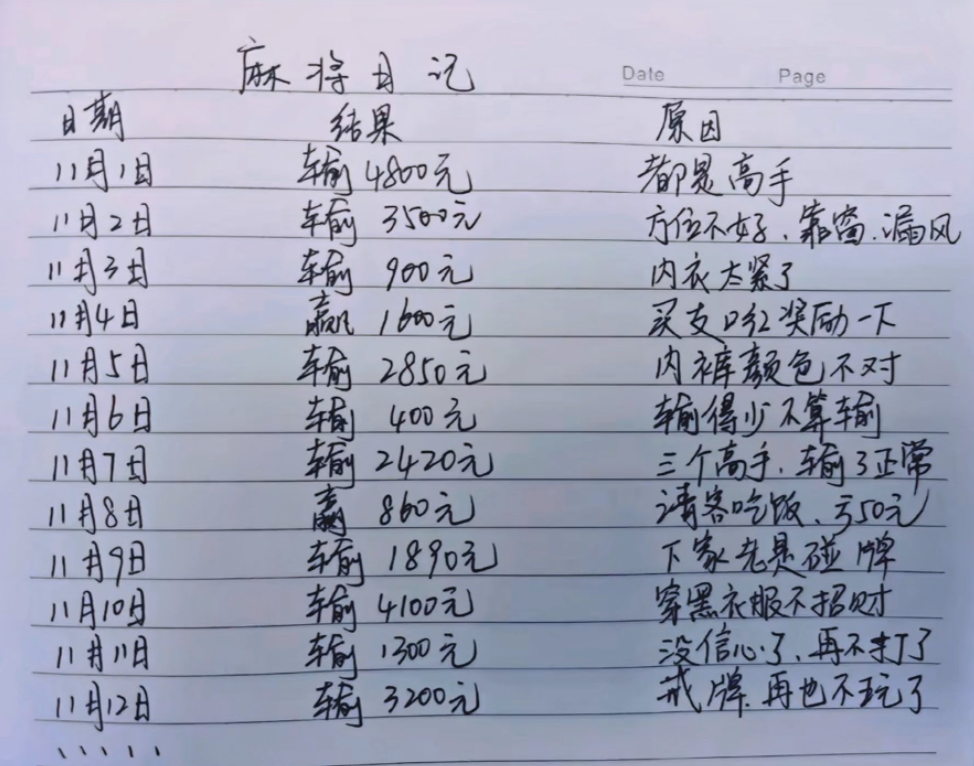 麻将日记 Date Page
日期 结果 原因
11月1日 输4800元 都是高手
11月2日 输3500元 方位不好、靠窗、漏风
11月3日 输900元 内衣太紧了
11月4日 赢1600元 买支口红奖励一下
11月5日 输2850元 内裤颜色不对
11月6日 输400元 输得少不算输
11月7日 输2420元 三个高手、输了正常
11月8日 赢860元 请客吃饭、亏50元
11月9日 输1890元 下家老是碰牌
11月10日 输4100元 穿黑衣服不招财
11月11日 输1300元 没信心了、再不打了
11月12日 输3200元 戒牌、再也不玩了
、、、、、